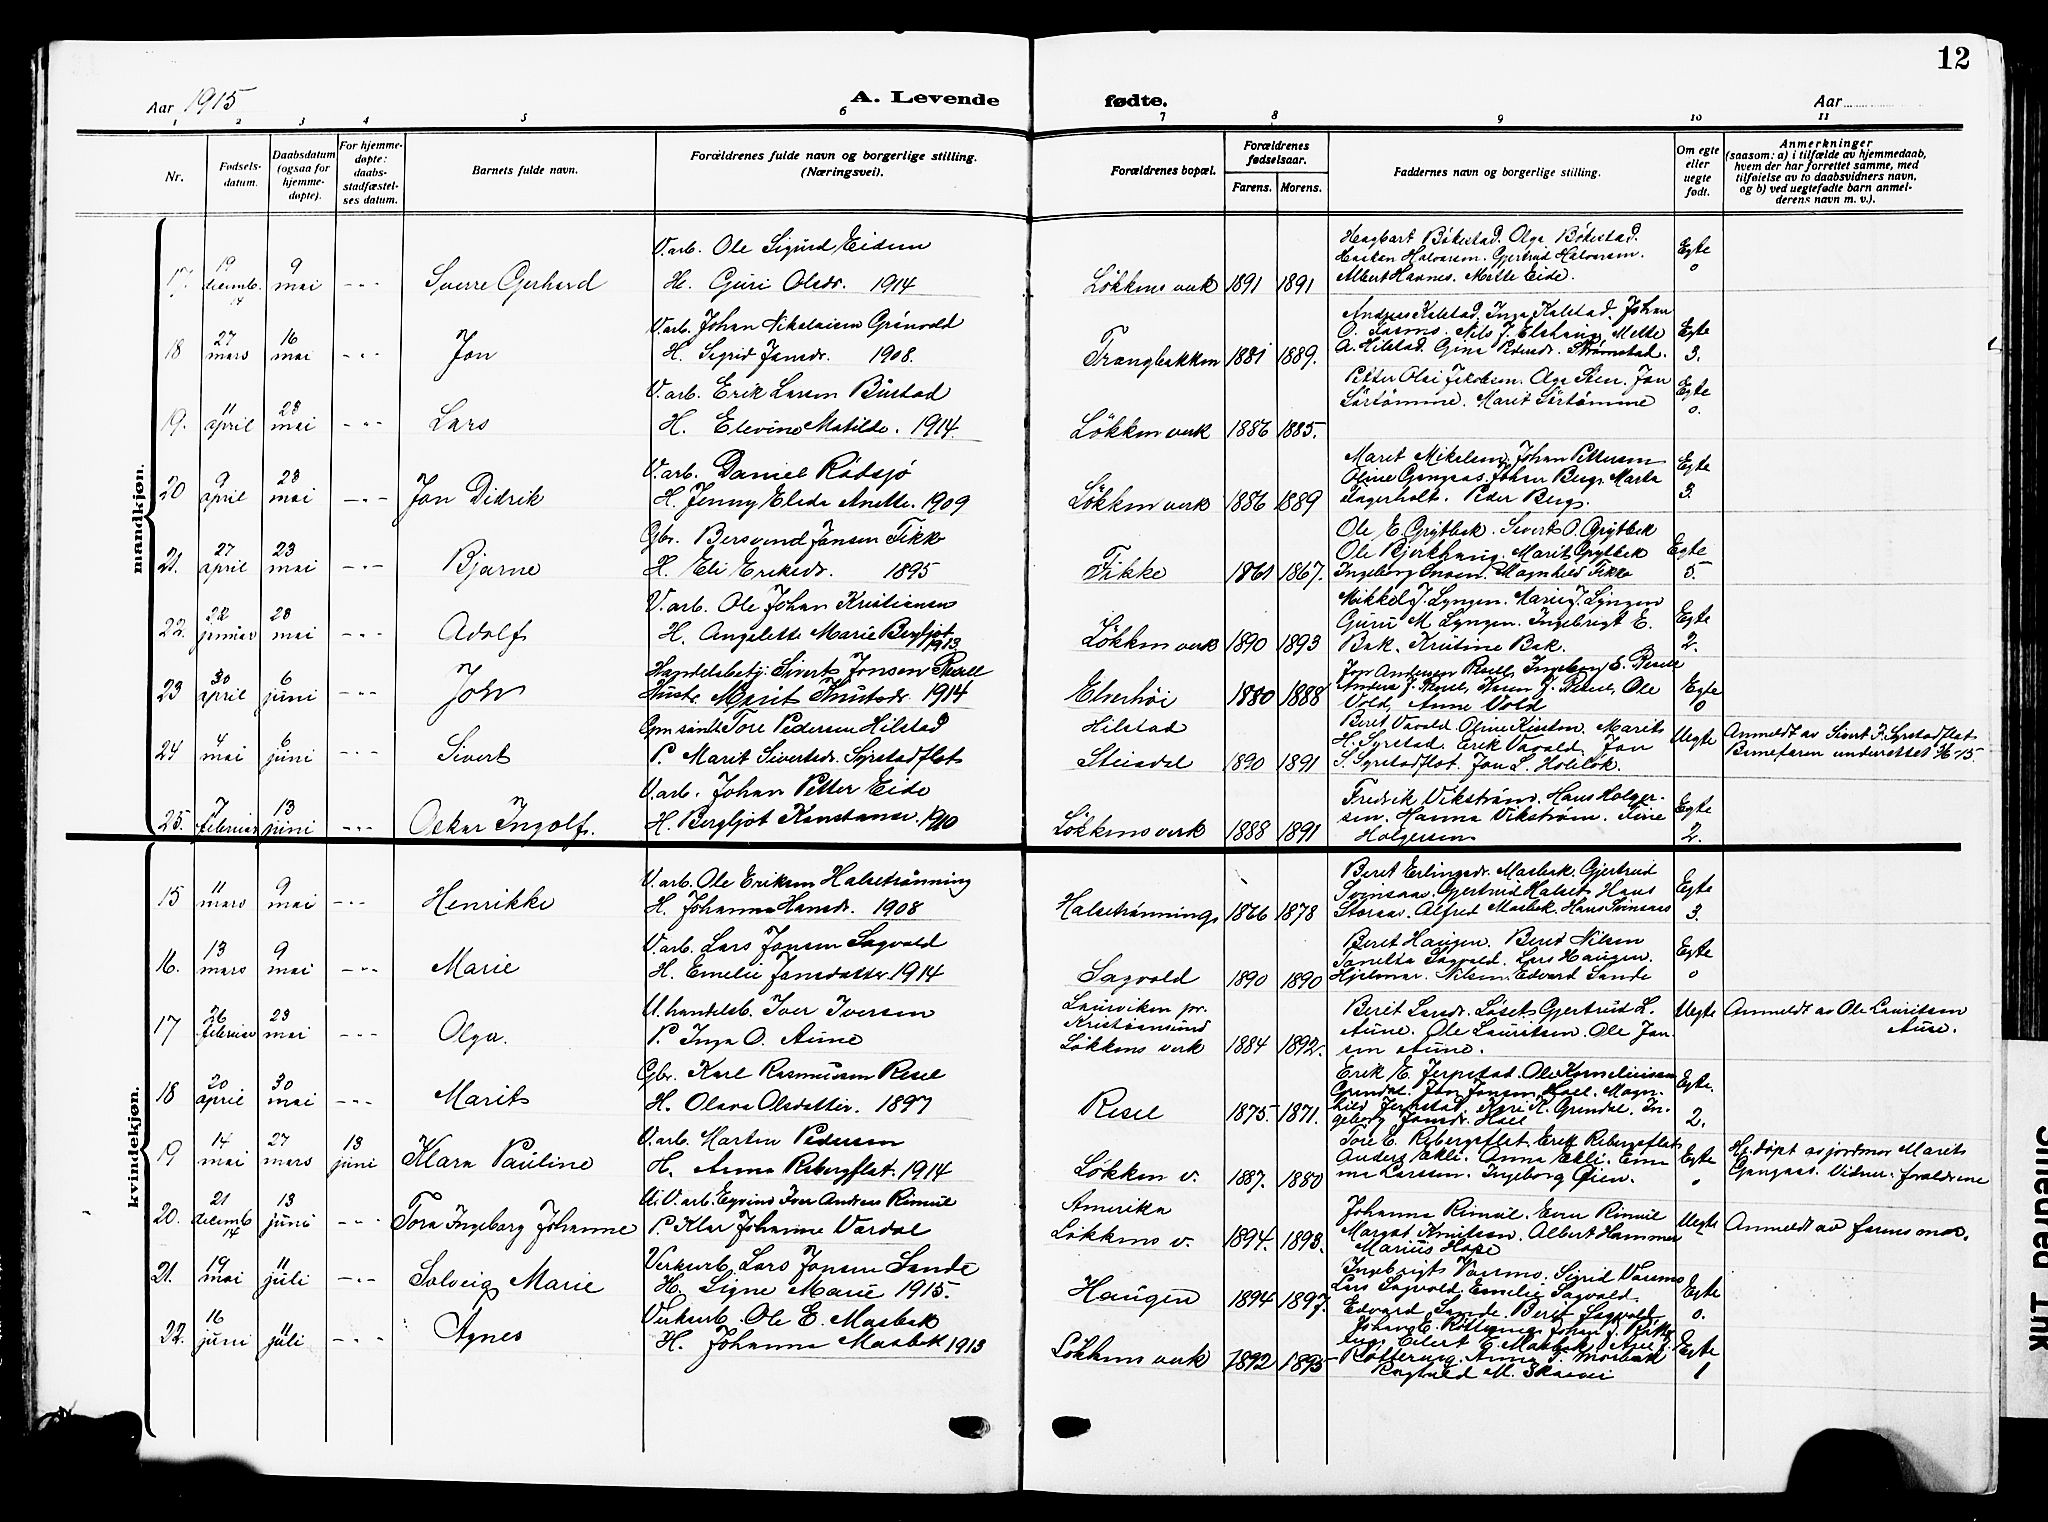 12
Aar 1915
A. Levende fødte.
Aar
1 2 3 4 5 6 7 8 9 10 11
Nr.
Fødsels-
datum.
Daabsdatum
(ogsaa for
hjemme-
døpte).
For hjemme-
døpte:
daabs-
stadfæstel-
ses datum.
Barnets fulde navn.
Forældrenes fulde navn og borgerlige stilling.
(Næringsvei).
Forældrenes bopæl.
Forældrenes
fødselsaar.
Farens. Morens.
Faddernes navn og borgerlige stilling.
Om egte
eller
uegte
født.
Anmerkninger
(saasom: a) i tilfælde av hjemmedaab,
hvem der har forrettet samme, med
tilføielse av to daabsvidners navn,
og b) ved uegtefødte barn anmel-
derens navn m. v.).
mandkjøn.
17. 19 decemb. 14 9 mai - " - Sverre Gerhard
V.arb. Ole Sigurd Eidem
H. Guri Olsdr. 1914
Løkkens verk 1891 1891
Hagbart Bökestad. Olga Bökestad.
Haakon Halvorsen. Gjertrud Halvorsen.
Albert Havnes. Mette Eide.
Egte
0
18 27 mars 16 mai - " - Jon
V.arb. Johan Nikolaisen Grönvold
H. Sigrid Jonsdr. 1908.
Trangbakken 1881 1889.
Andreas Kalstad. Inga Kalstad. Johan
A. Hilstad. Gina Pedersdr.
Egte
3.
19. 11 april 23 mai - " - Lars
V.arb. Erik Larsen Bustad
H. Elevine Matilde. 1914.
Løkken verk 1886 1885.
Petter Olai Jakobsen. Olga Sten. Jon
Sörtömme. Marit Sörtömme
Egte
0.
20 9 april 23 mai - " - Jon Didrik
V.arb. Daniel Rödsjö
H. Jenny Elida Anette. 1909
Løkken verk 1886 1889
Maret Mikelsen. Johan Pettersen
Oline Gangaas. Johan Berg. Marta
Fagerholt. Peder Berg.
Egte
3.
21. 27 april 23 mai - " - Bjarne
Gbr. Bersvend Jonsen Fikke
H. Eli Eriksdr. 1895
Fikke 1861 1867.
Ole E. Grytbak. Sivert O. Grytbak
Ole Bjerkhaug. Marit Grytbak
Ingeborg Snoen. Magnhild Fikke
Egte
5.
22. 22 januar 23 mai - " - Adolf
V.arb. Ole Johan Kristiansen
H. Angelette Marie Bergljot 1913.
Løkken verk 1890 1893
Mikkel J. Lyngen. Marie J. Lyngen
Guru M. Lyngen. Ingebrigt E.
Bak. Kristine Bak.
Egte
2.
23 30 april 6 juni - " - John
Handelsbetj. Sivert Jonsen Resell
Hustr. Marit Knutsdr. 1914
Elverhöi 1880 1888
Jon Andersen Resell, Ingeborg E. Resell
Anders J. Resell, Karen J. Resell, Ole
Vold, Anne Vold
Egte
0
24 4 mai 6 juni - " - Sivert
Tore Pedersen Hilstad
P. Marit Sivertsdr. Syrstadflot
Hilstad
1890 1891
H. Syrstad. Erik Vavold. Jon
S. Syrstadflot. Jon L. Holilök.
Uegte
Anmeldt av Sivert J. Syrstadflot
Barnefaren underrettet
25. 7 februar 13 juni - " - Oskar Ingolf.
V.arb. Johan Petter Eide
H. Bergljot Konstanse. 1910
Løkkens verk 1888 1891
Fredrik Vikström. Hans Holger-
sen. Hanna Vikström. Tine
Holgersen
Egte
2.
kvindekjøn.
15 11 mars 9 mai - " - Henrikke
V.arb. Ole Eriksen Halsetrönning
H. Johanna Hansdr. 1908
Halsetrönnings 1866 1878
Beret Erlingsdr. Mosbek. Gjertrud
Svinsaas. Gjertrud Halset. Hans
Storaas. Alfred Mosbek. Hans Svinsaas
Egte
3.
16. 13 mars 9 mai - " - Marie
V.arb. Lars Jonsen Sagvold
H. Emelie Jonsdatter 1914
Sagvold 1890 1890
Beret Haugen. Berit Nilsen
Sagvold. Lars Haugen.
Hjelmar Nilsen. Edvard Sande
Egte
0
17 26 februar 23 mai - " - Olga.
U. handelsb. Iver Iversen
P. Inga O. Aune
Laurviken pr.
Kristiansund
Løkkens verk 1884 1892.
Berit Larsdr. Löset. Gjertrud L.
Aune. Ole Lauritsen. Ole Jon-
sen Aune.
Uegte
Anmeldt av Ole Lauritsen
Aune.
18 20 april 30 mai - " - Marit
Gbr. Karl Rasmussen Resell
H. Olava Olsdatter. 1897
Resell 1875- 1871.
Erik E. Jerpstad. Ole Korneliussen
Grendal. Jon Jonsen Hoel. Magn-
hild Jerpstad. Kari K. Grendal. In-
geborg Jonsdr. Hoel
Egte.
2.
19 14 mai 27 mars 13 juni Klara Pauline
V.arb. Martin Pedersen
H. Anna Rebergflat. 1914
Løkken v. 1887. 1880
Tore E. Rebergsflet. Erik Rebergsflet.
Anders Ekli. Anna Ekli. Em-
ma Larssen. Ingeborg Øien.
Egte
0
Hj. døpt av jordmor Marit
Gangaas. Vidner: forældrene
20. 21 decemb. 14 13 juni - " - Tora Ingeborg Johanne
U. V.arb. Eyvind Iver Andreas Rimuil
P. Klar Johanne Vardal
Amerika
Løkkens v. 1894. 1893.
Johanna Rimuil. Even Rimuil
Margot Arntsen. Albert Hammer
Marius Hope
Uegte
Anmeldt av farens mor.
21. 19 mai 11 juli - " - Solveig Marie
Verksarb. Lars Jonsen Sande
H. Signe Marie 1915.
Haugen 1894 1897.
Ingebrigt Vormo. Sigrid Vormo
Lars Sagvold. Emelie Sagvold.
Edvard Sande. Berit Sagvold.
Egte
0.
22. 16 juni 11 juli - " - Agnes
Verksarb. Ole E. Mosbek
H. Johanna Mosbek 1913
Løkkens verk 1892 1895
Eilert E. Mosbek
Ragnhild M. Skarvei
Egte
1